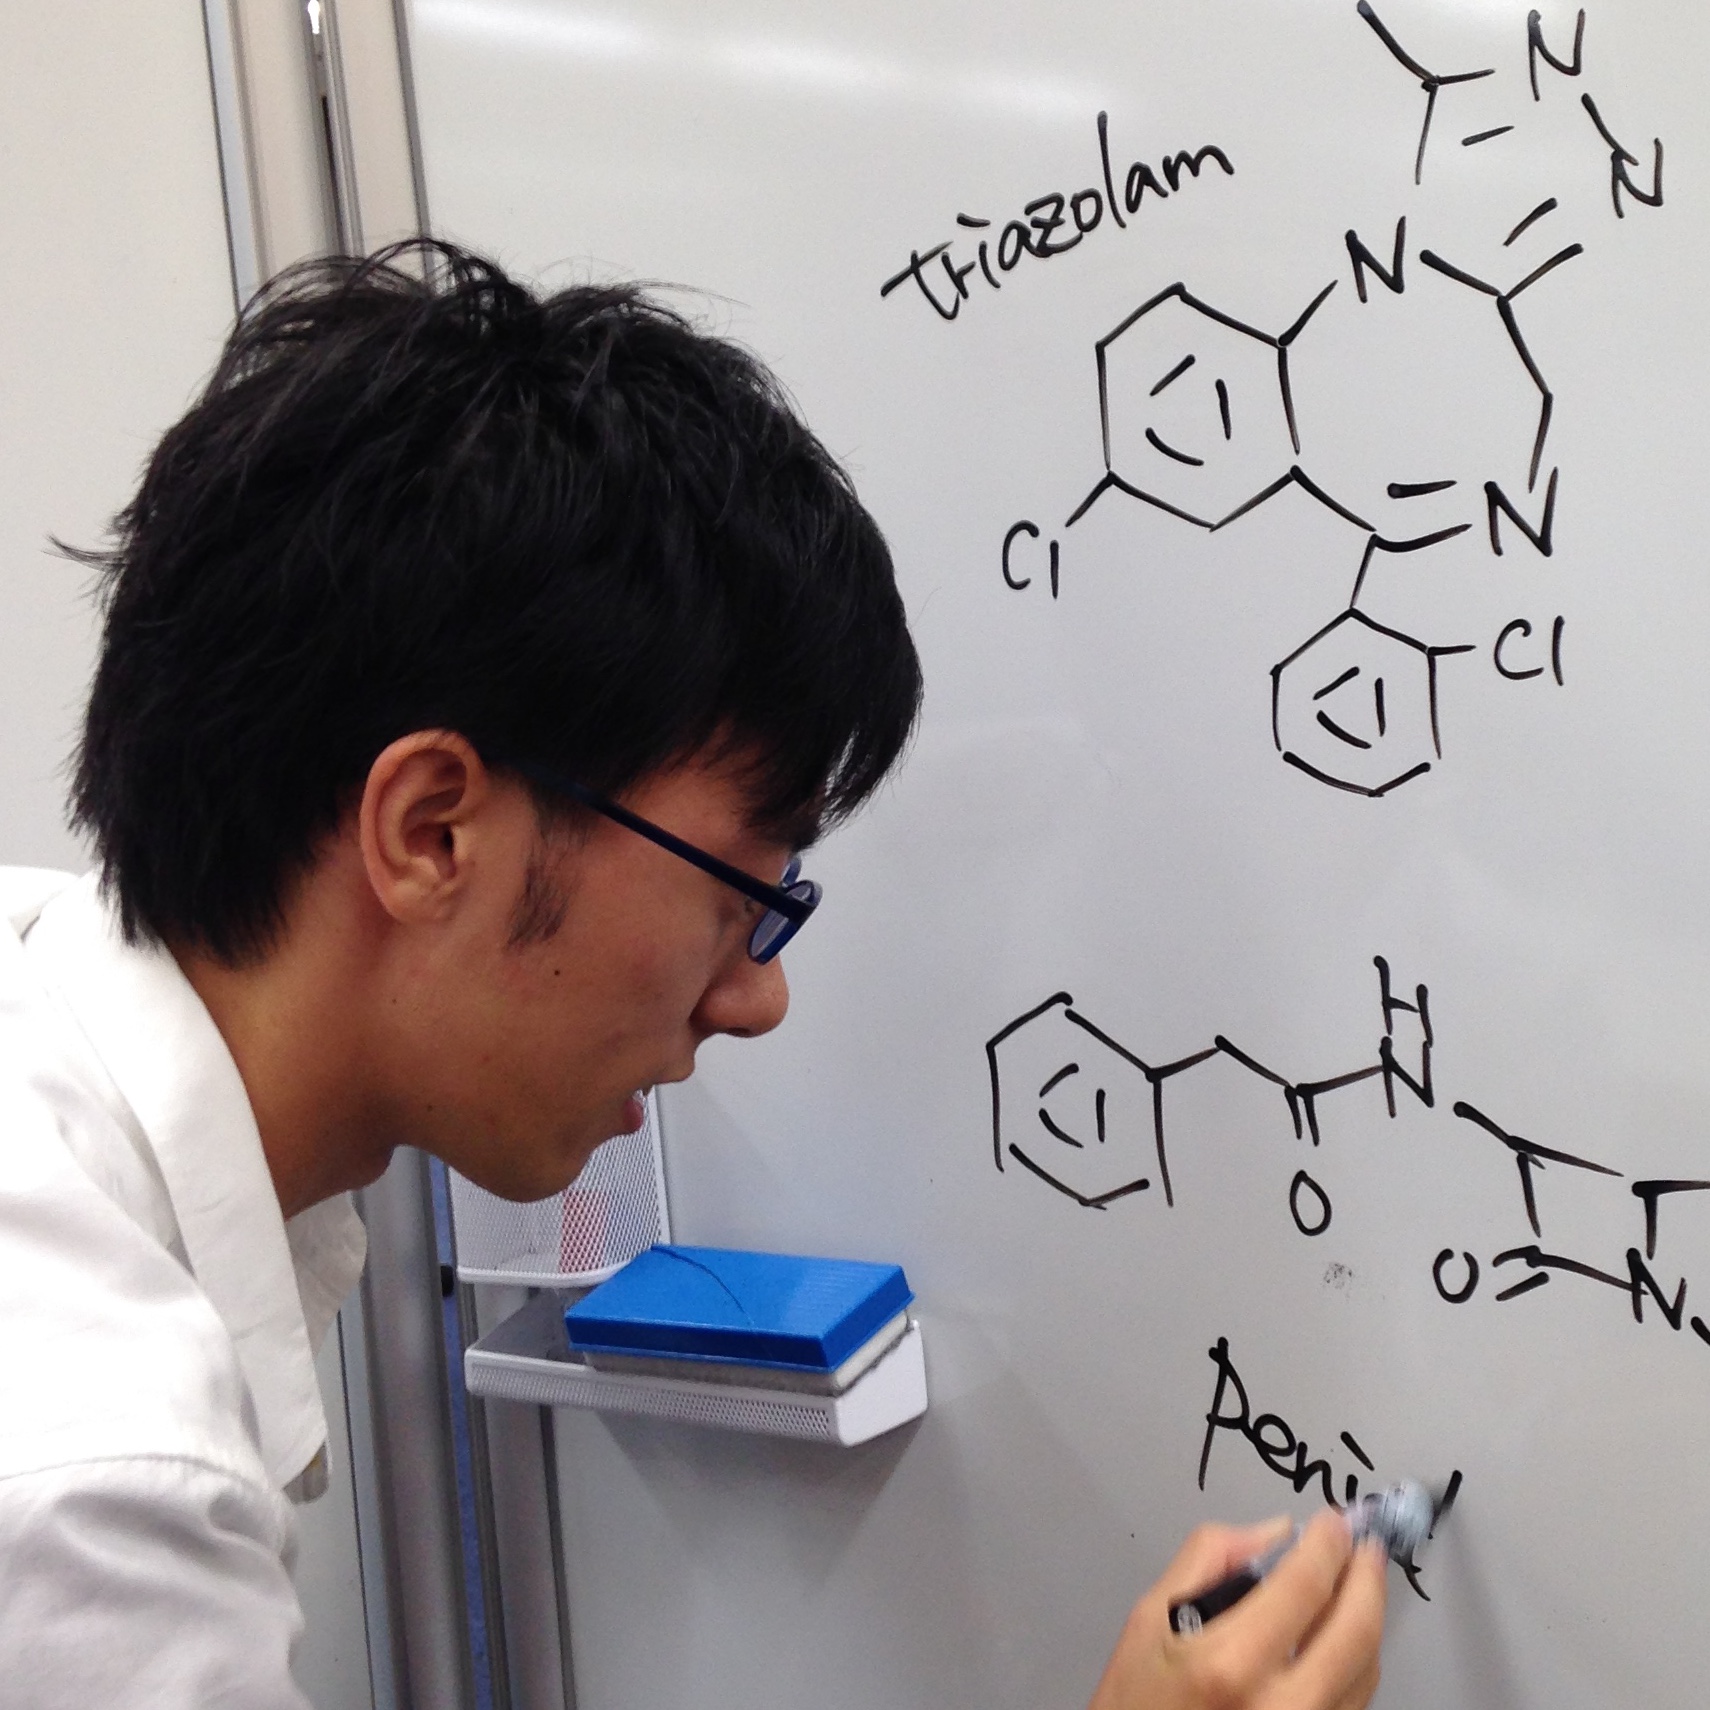 N
N
triazolam
N
N
Cl
Cl
H
N
O
O
N
Peni